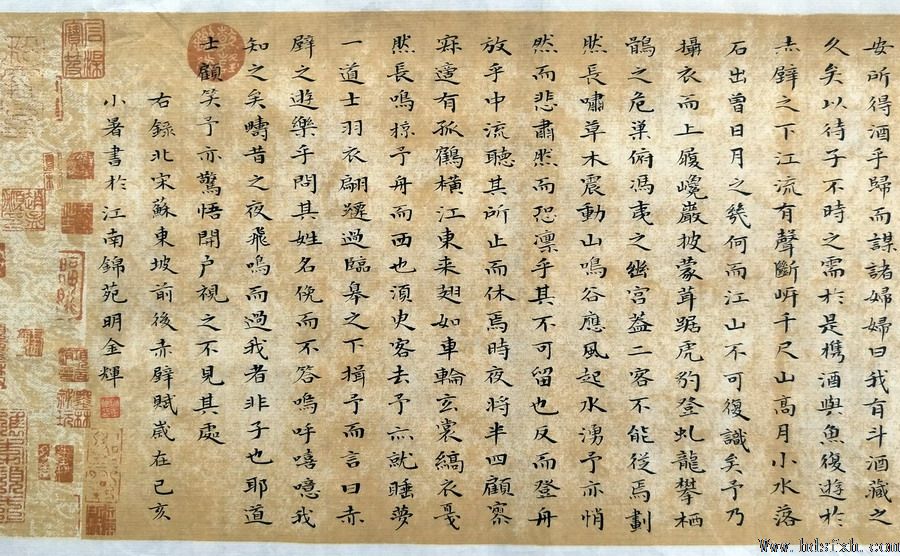 安所得酒乎歸而謀諸婦婦曰我有斗酒藏之
久矣以待子不時之需於是攜酒與魚復遊於
赤壁之下江流有聲斷岍千尺山高月小水落
石出曾日月之幾何而江山不可復識矣予乃
攝衣而上履巉巖披蒙茸踞虎豹登虬龍攀栖
鶻之危巢俯馮夷之幽宮蓋二客不能從焉劃
然長嘯草木震動山鳴谷應風起水湧予亦悄
然而悲肅然而恐凛乎其不可留也反而登舟
放乎中流聽其所止而休焉時夜將半四顧寥
寂適有孤鶴橫江東来翅如車輪玄裳縞衣戛
然長鳴掠予舟而西也須臾客去予亦就睡夢
一道士羽衣翩躚過臨皋之下揖予而言曰赤
壁之遊樂乎問其姓名俛而不答嗚呼嘻噫我
知之矣疇昔之夜飛鳴而過我者非子也耶道
士顧笑予亦驚悟開户視之不見其處
右錄北宋蘇東坡前後赤壁賦歲在己亥
小暑書於江南錦苑明金輝